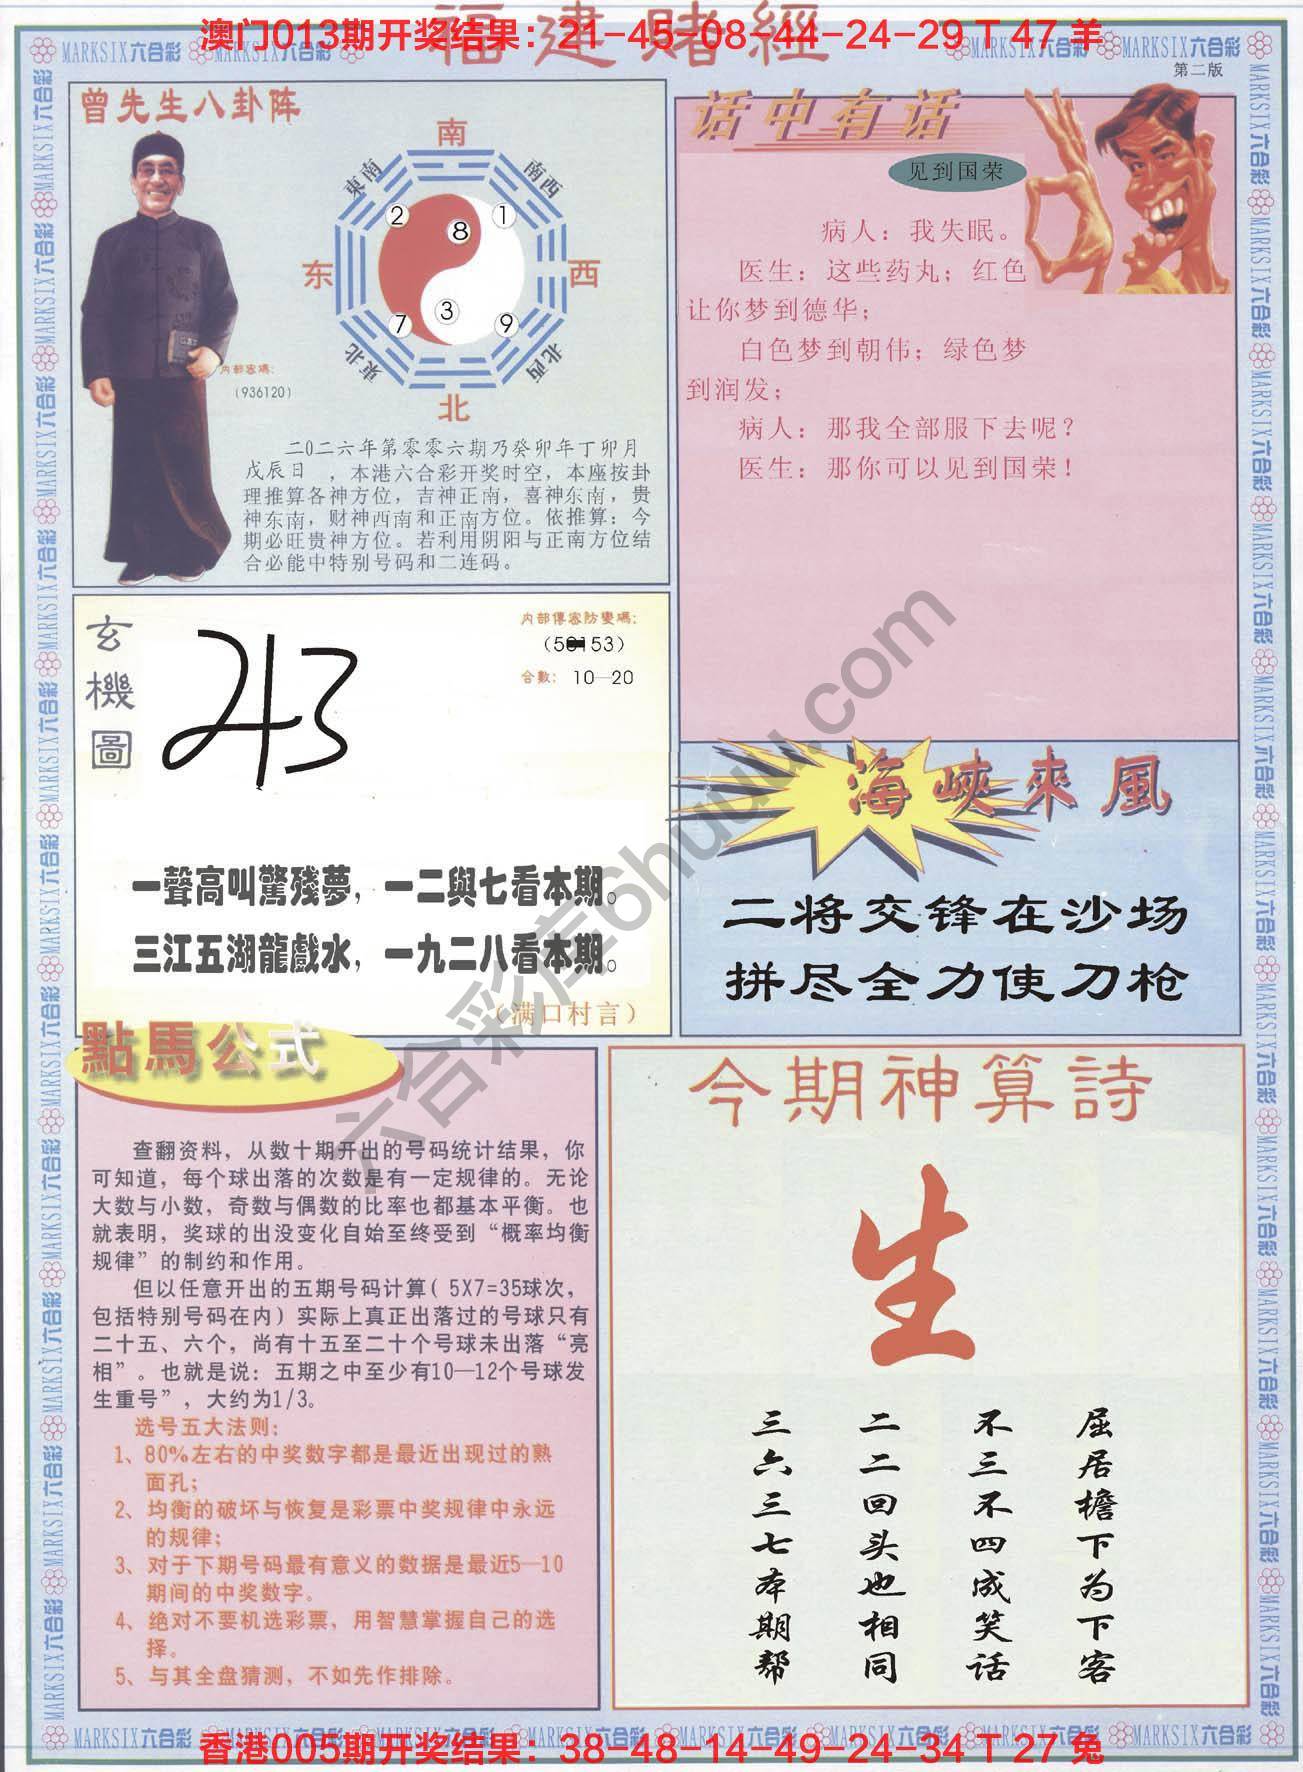 福建赌經
澳门013期开奖结果：21-45-08-44-24-29 T 47 羊
MARKSIX六合彩
第二版
曾先生八卦阵
南
東南
南西
2
1
8
东
西
3
7
9
東北
北西
北
内部密碼：
（936120）
二0二六年第零零六期乃癸卯年丁卯月
戊辰日，本港六合彩开奖时空，本座按卦
理推算各神方位，吉神正南，喜神东南，贵
神东南，财神西南和正南方位。依推算：今
期必旺贵神方位。若利用阴阳与正南方位结
合必能中特别号码和二连码。
话中有话
见到国荣
病人：我失眠。
医生：这些药丸；红色
让你梦到德华；
白色梦到朝伟；绿色梦
到润发；
病人：那我全部服下去呢？
医生：那你可以见到国荣！
玄機圖
内部傳密防變碼：
合數：10—20
一聲高叫驚殘夢，一二與七看本期。
三江五湖龍戲水，一九二八看本期。
（满口村言）
海峽來風
二将交锋在沙场
拼尽全力使刀枪
點馬公式
查翻资料，从数十期开出的号码统计结果，你
可知道，每个球出落的次数是有一定规律的。无论
大数与小数，奇数与偶数的比率也都基本平衡。也
就表明，奖球的出没变化自始至终受到“概率均衡
规律”的制约和作用。
但以任意开出的五期号码计算（5X7=35球次，
包括特别号码在内）实际上真正出落过的号球只有
二十五、六个，尚有十五至二十个号球未出落“亮
相”。也就是说：五期之中至少有10—12个号球发
生重号”，大约为1/3。
选号五大法则：
1、80%左右的中奖数字都是最近出现过的熟
面孔；
2、均衡的破坏与恢复是彩票中奖规律中永远
的规律；
3、对于下期号码最有意义的数据是最近5—10
期间的中奖数字。
4、绝对不要机选彩票，用智慧掌握自己的选
择。
5、与其全盘猜测，不如先作排除。
今期神算詩
生
屈居檐下为下客
不三不四成笑话
二二回头也相同
三六三七本期帮
六合彩库6huuu.com
香港005期开奖结果：38-48-14-49-24-34 T 27 兔